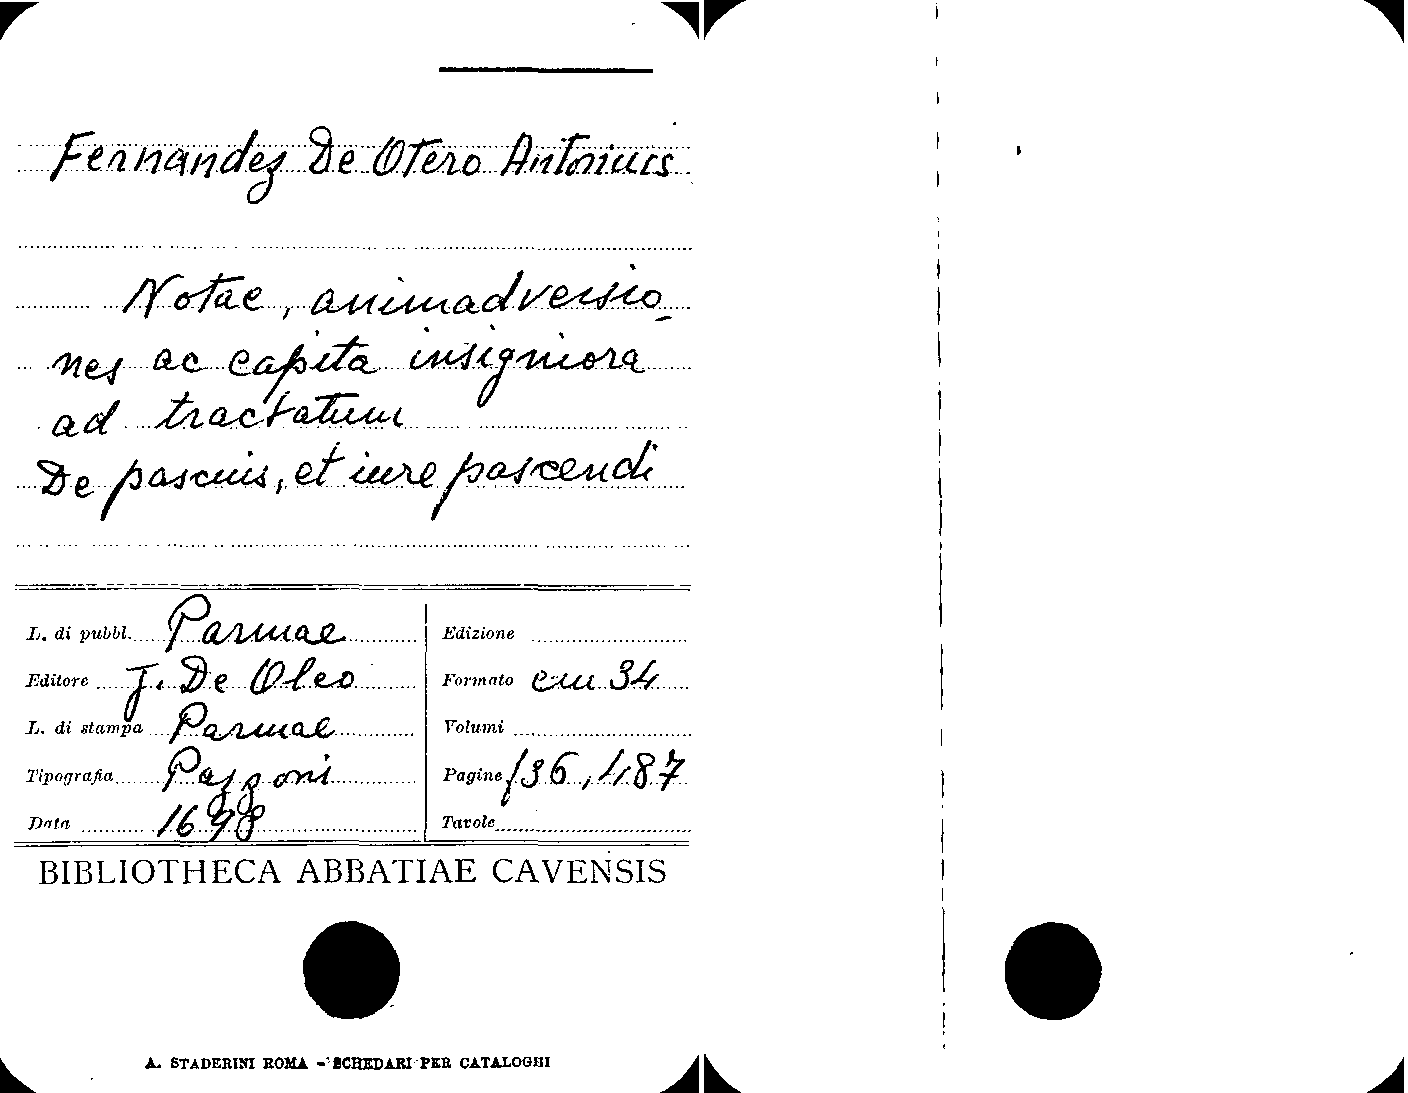 Fernandez De Otero Antonius
Notae, animadversio-
nes ac capita insigniora
ad tractatum
De pascuis, et iure pascendi
L. di pubbl. Parmae
Editore J. De Oleo
L. di stampa Parmae
Tipografia Pazzoni
Data 1698
Edizione
Formato cm 34
Volumi
Pagine 136, 487
Tavole
BIBLIOTHECA ABBATIAE CAVENSIS
A. STADERINI ROMA - SCHEDARI PER CATALOGHI